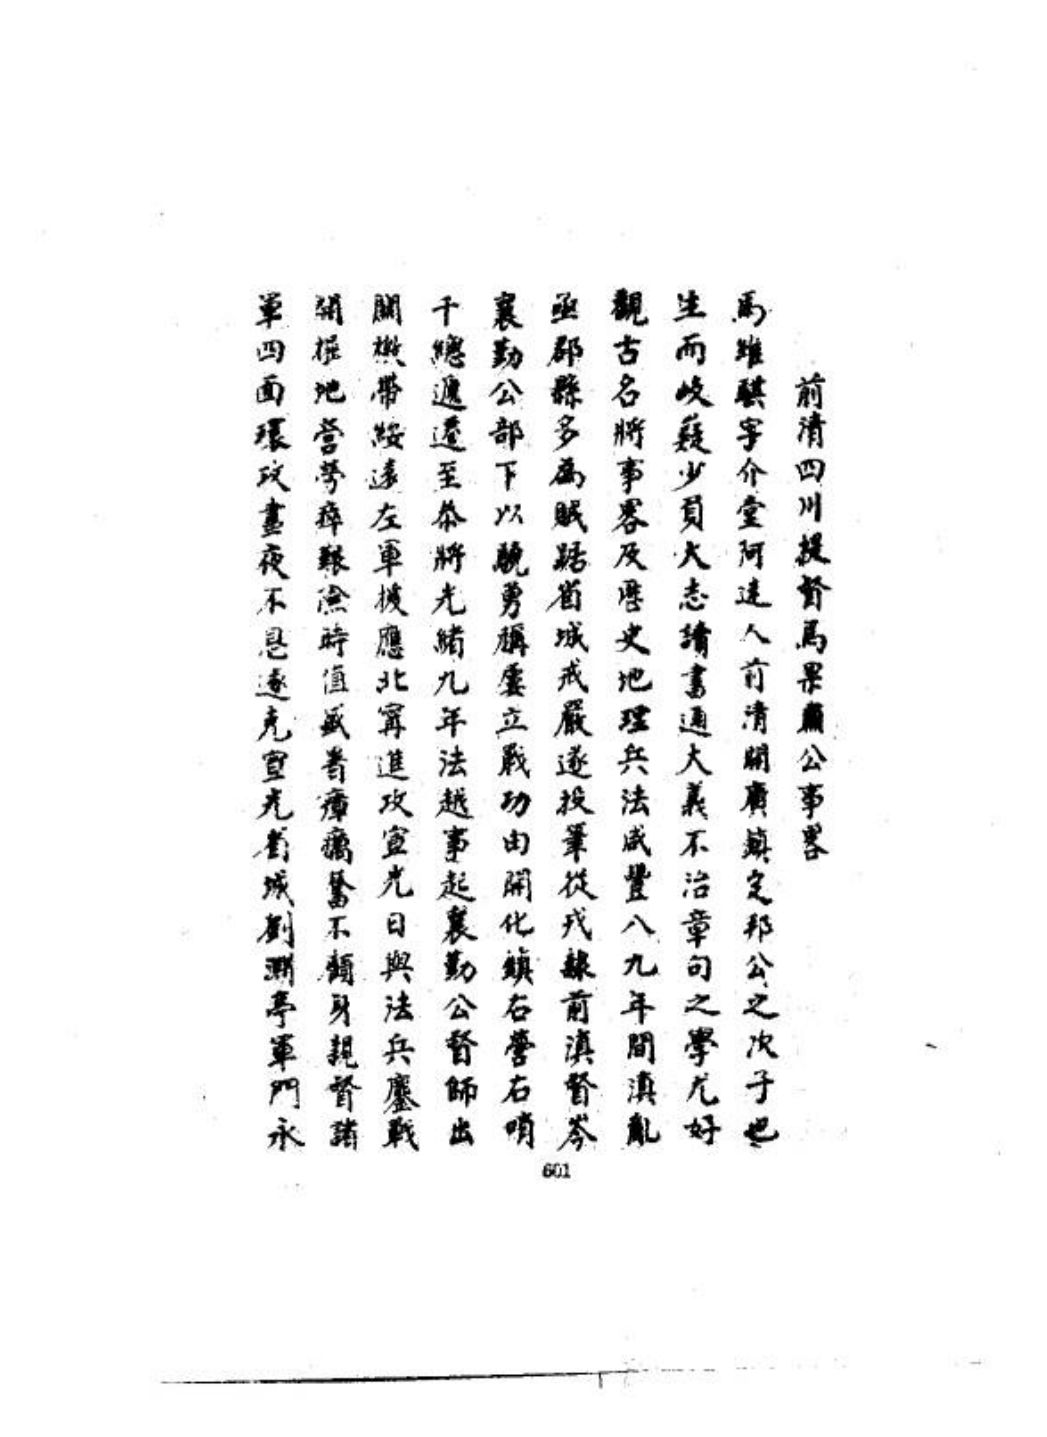 前清四川提督馬果肅公事畧
馬維騏字介堂阿迷人前清開廣鎮定邦公之次子也
生而岐嶷少負大志讀書通大義不治章句之學尤好
觀古名將事畧及歷史地理兵法咸豐八九年間滇亂
亟郡縣多為賊踞省城戒嚴遂投筆從戎隸前滇督岑
襄勤公部下以驍勇稱屢立戰功由開化鎮右營右哨
千總遞遷至叅將光緒九年法越事起襄勤公督師出
關檄帶綏遠左軍援應北寧進攻宣光日與法兵鏖戰
開挖地營勞瘁艱險時值盛暑瘴癘奮不顧身親督諸
軍四面環攻晝夜不息遂克宣光省城劉淵亭軍門永
601